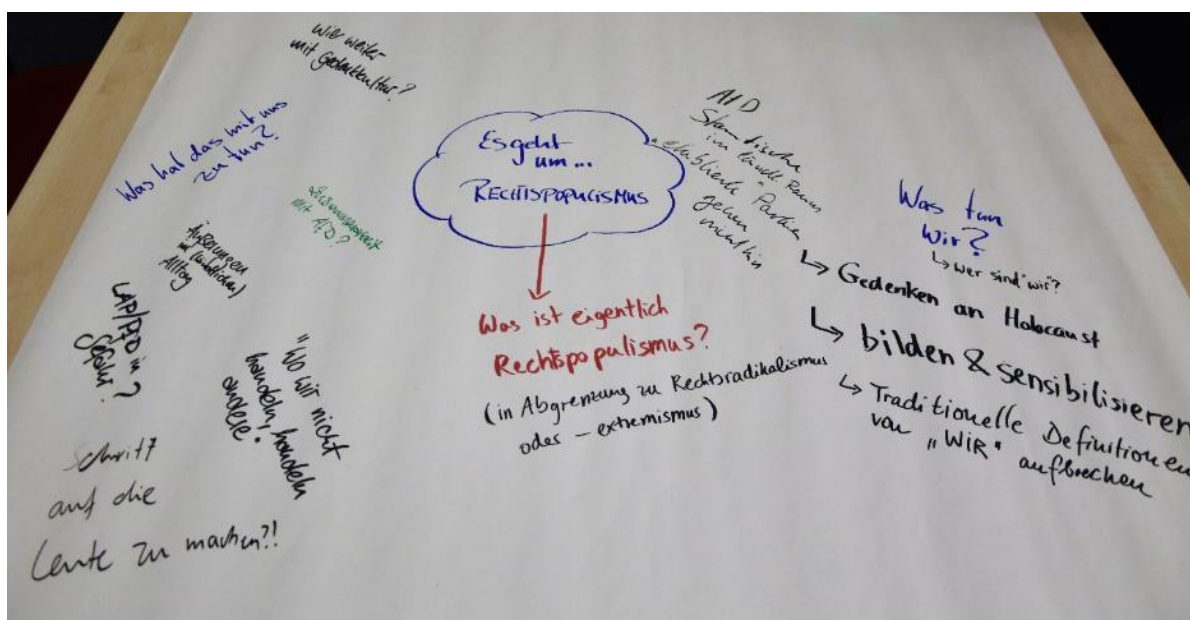 Wie weiter
mit Gedenkkultur?
Was hat das mit uns
zu tun?
mit AfD?
Äußerungen
im (ländlichen)
Alltag
LAP/PfD in
Gefahr?
"Wo wir nicht
handeln, handeln
andere."
Schritt
auf die
Leute zu machen?!
Es geht
um...
RECHTSPOPULISMUS
Was ist eigentlich
Rechtspopulismus?
(in Abgrenzung zu Rechtsradikalismus
oder -extremismus)
AfD
Stammtische
im ländl. Raum
etablierte Parteien
gehen
nicht hin
Was tun
Wir?
↳ wer sind "wir"?
↳ Gedenken an Holocaust
↳ bilden & sensibilisieren
↳ Traditionelle Definitionen
von "WIR" aufbrechen